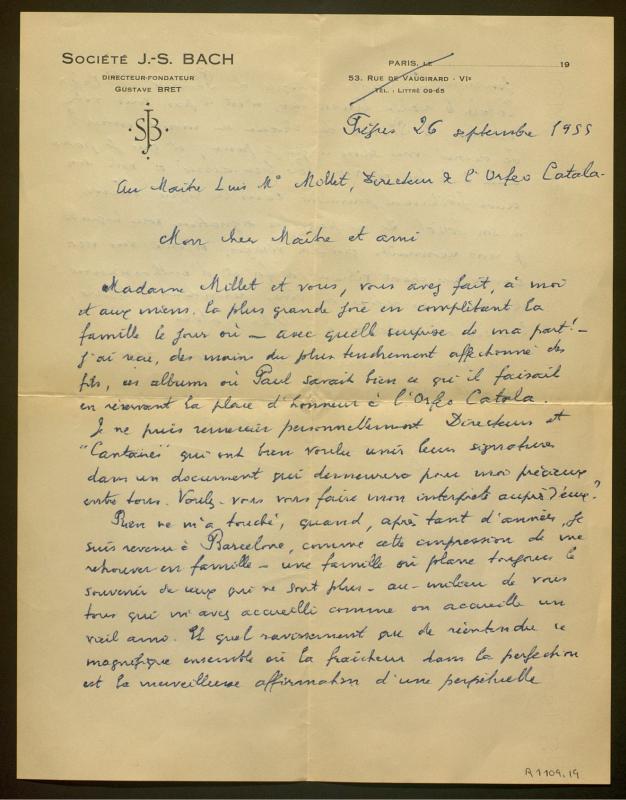 SOCIÉTÉ J.-S. BACH
DIRECTEUR-FONDATEUR
GUSTAVE BRET
SJB
PARIS, LE 19
53, RUE DE VAUGIRARD - VIe
TÉL. : LITTRÉ 09-65
26 septembre 1955
Au Maître Luis Mº Millet, Directeur de l'Orfeo Catala-
Mon cher Maître et ami
Madame Millet et vous, vous avez fait, à moi
et aux miens la plus grande joie en complétant la
famille le jour où — avec quelle surprise de ma part! —
j'ai reçu, des mains du plus tendrement affectionné des
fils, ces albums où Paul savait bien ce qu'il faisait
en réservant la place d'honneur à l'Orfeo Catala.
Je ne puis remercier personnellement Directeur et
"Cantaires" qui ont bien voulu unir leurs signatures
dans un document qui demeurera pour moi précieux
entre tous. Voulez-vous vous faire mon interprète auprès d'eux?
Rien ne m'a touché, quand, après tant d'années, je
suis revenu à Barcelone, comme cette impression de me
retrouver en famille — une famille où plane toujours le
souvenir de ceux qui ne sont plus — au milieu de vous
tous qui m'avez accueilli comme on accueille un
vieil ami. Et quel ravissement que de réentendre ce
magnifique ensemble où la fraîcheur dans la perfection
est la merveilleuse affirmation d'une perpétuelle
R 1109.19